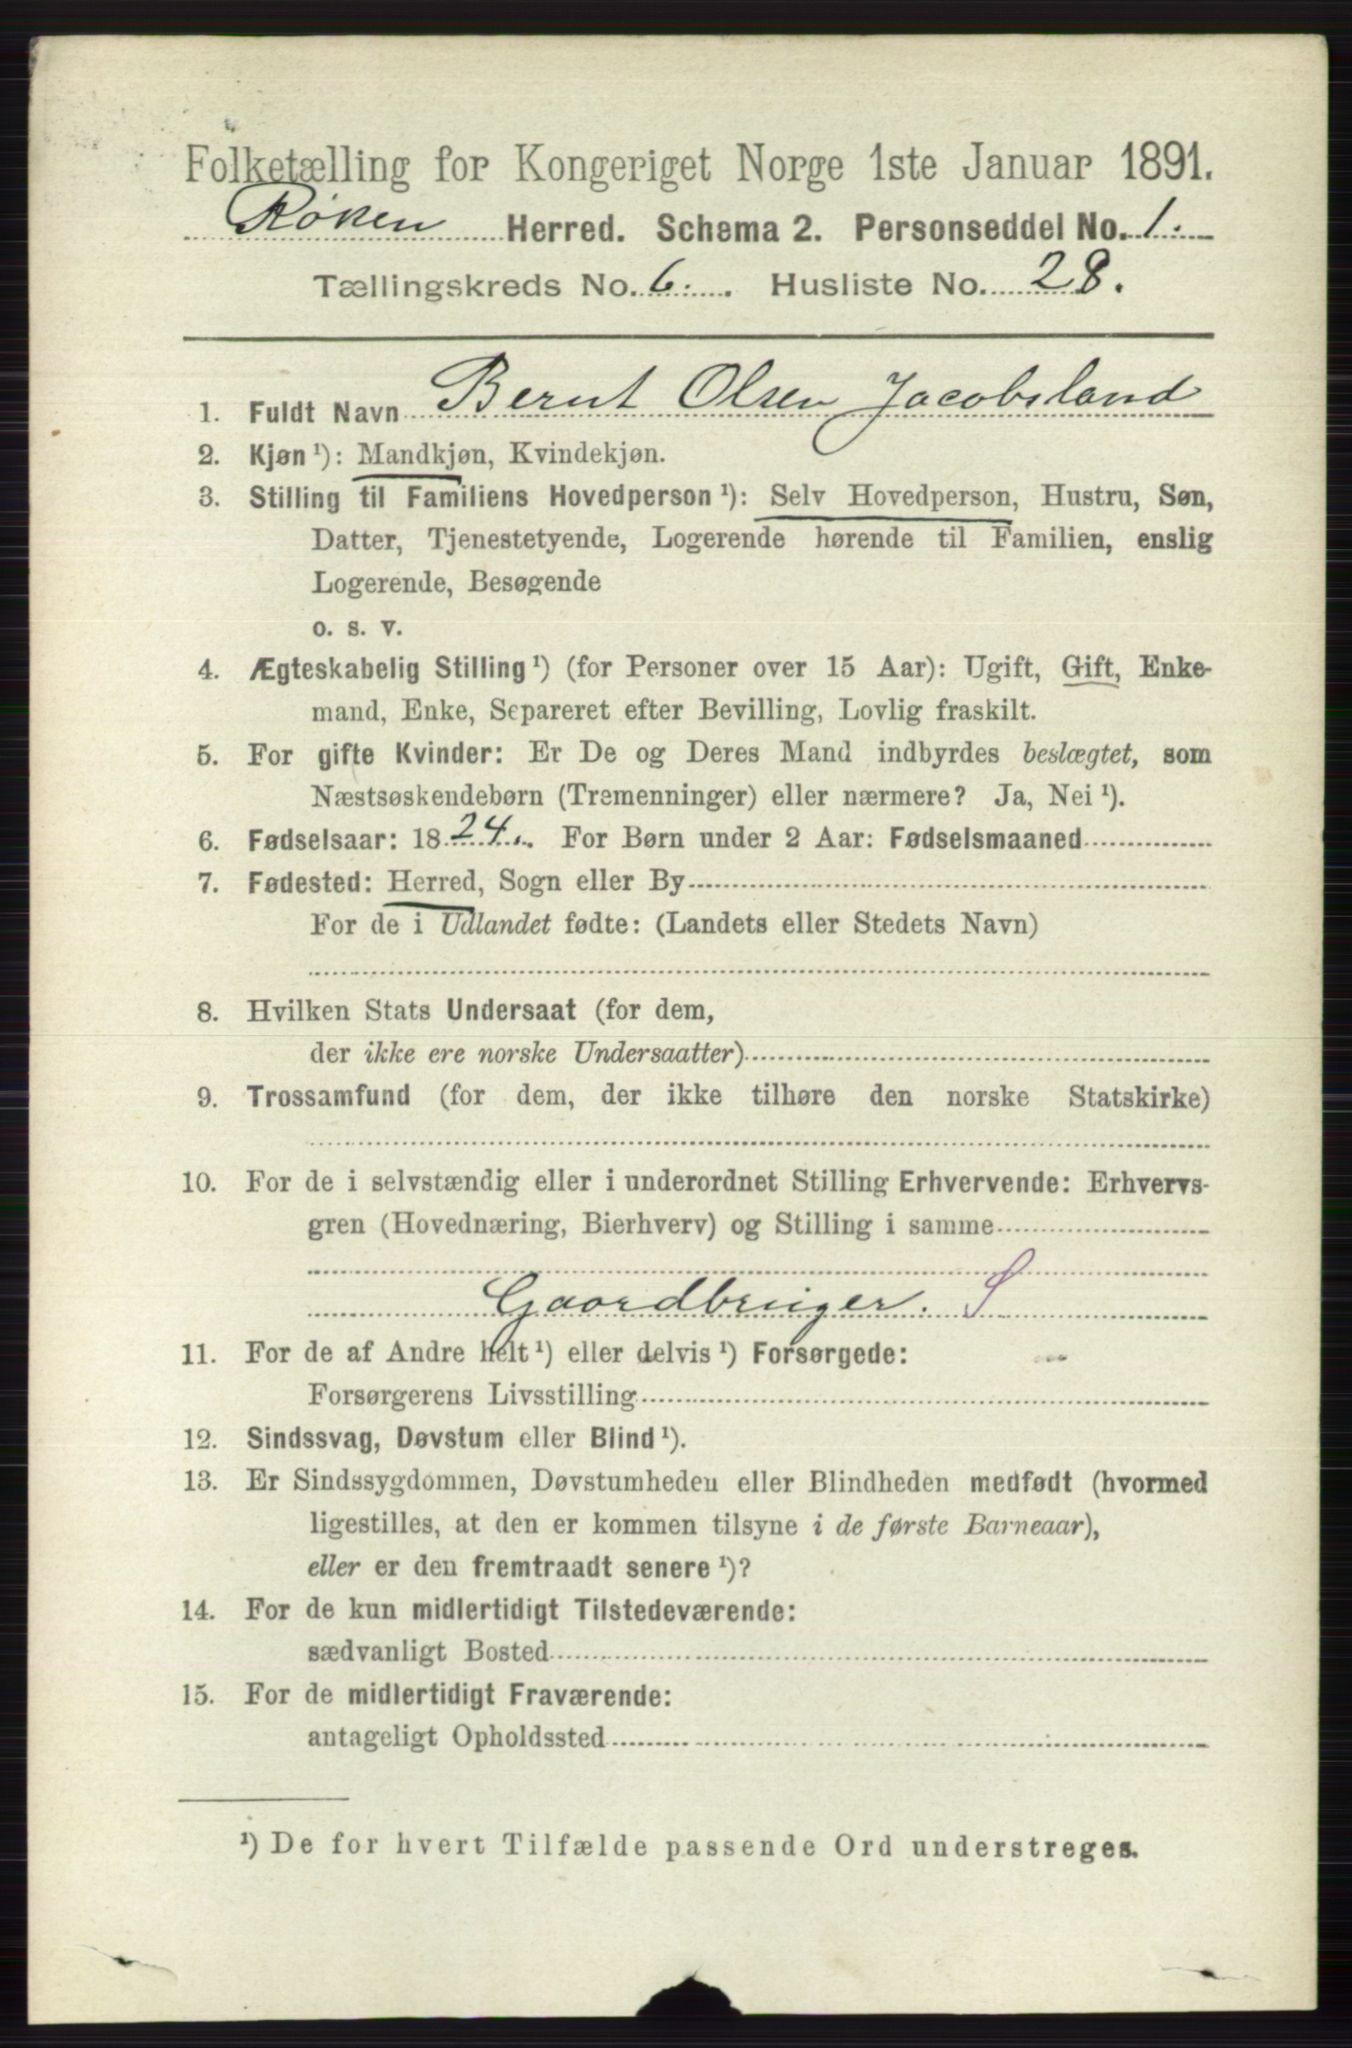 Folketælling for Kongeriget Norge 1ste Januar 1891.
Røken Herred. Schema 2. Personseddel No. 1.
Tællingskreds No. 6. Husliste No. 28.
1. Fuldt Navn Bernt Olsen Jacobsland
2. Kjøn ¹): Mandkjøn, Kvindekjøn.
3. Stilling til Familiens Hovedperson ¹): Selv Hovedperson, Hustru, Søn,
Datter, Tjenestetyende, Logerende hørende til Familien, enslig
Logerende, Besøgende
o. s. v.
4. Ægteskabelig Stilling ¹) (for Personer over 15 Aar): Ugift, Gift, Enke-
mand, Enke, Separeret efter Bevilling, Lovlig fraskilt.
5. For gifte Kvinder: Er De og Deres Mand indbyrdes beslægtet, som
Næstsøskendebørn (Tremenninger) eller nærmere? Ja, Nei ¹).
6. Fødselsaar: 1824. For Børn under 2 Aar: Fødselsmaaned
7. Fødested: Herred, Sogn eller By
For de i Udlandet fødte: (Landets eller Stedets Navn)
8. Hvilken Stats Undersaat (for dem,
der ikke ere norske Undersaatter)
9. Trossamfund (for dem, der ikke tilhøre den norske Statskirke)
10. For de i selvstændig eller i underordnet Stilling Erhvervende: Erhvervs-
gren (Hovednæring, Bierhverv) og Stilling i samme
Gaardbruger. S
11. For de af Andre helt ¹) eller delvis ¹) Forsørgede:
Forsørgerens Livsstilling
12. Sindssvag, Døvstum eller Blind ¹).
13. Er Sindssygdommen, Døvstumheden eller Blindheden medfødt (hvormed
ligestilles, at den er kommen tilsyne i de første Barneaar),
eller er den fremtraadt senere ¹)?
14. For de kun midlertidigt Tilstedeværende:
sædvanligt Bosted
15. For de midlertidigt Fraværende:
antageligt Opholdssted
¹) De for hvert Tilfælde passende Ord understreges.